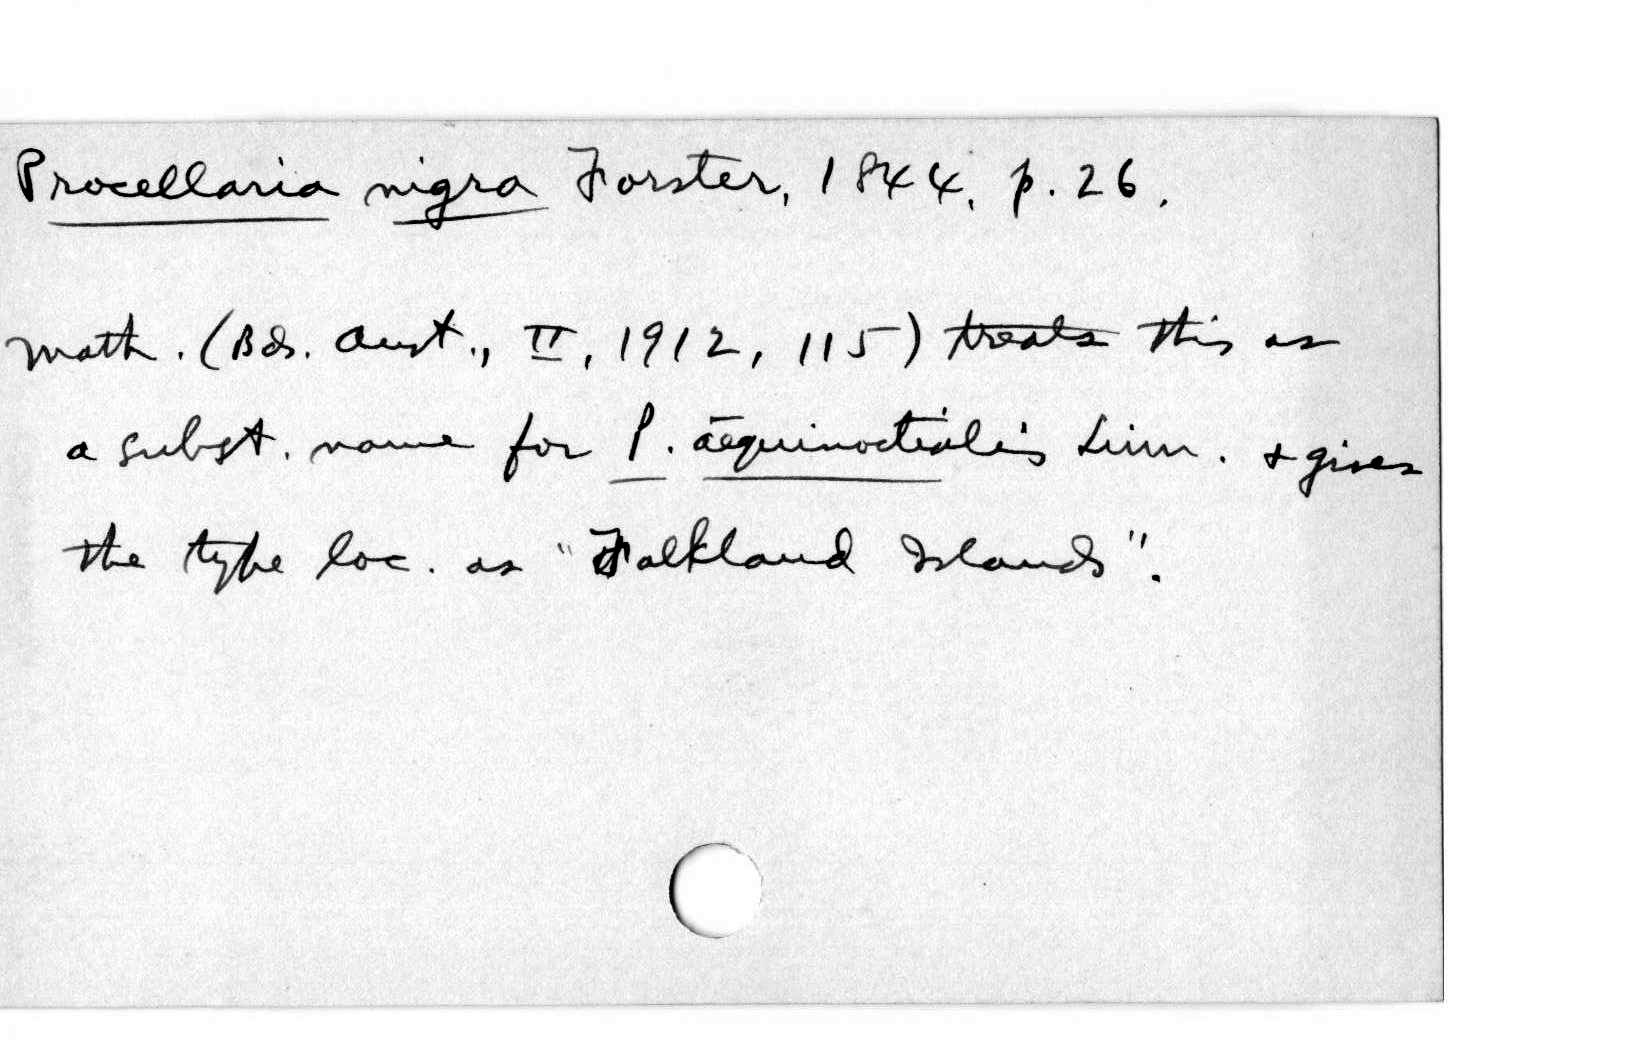 Procellaria nigra Forster, 1844, p. 26.
Math. (Bds. Aust., II, 1912, 115) treats this as
a subst. name for P. aequinoctialis Linn. & gives
the type loc. as "Falkland Islands".